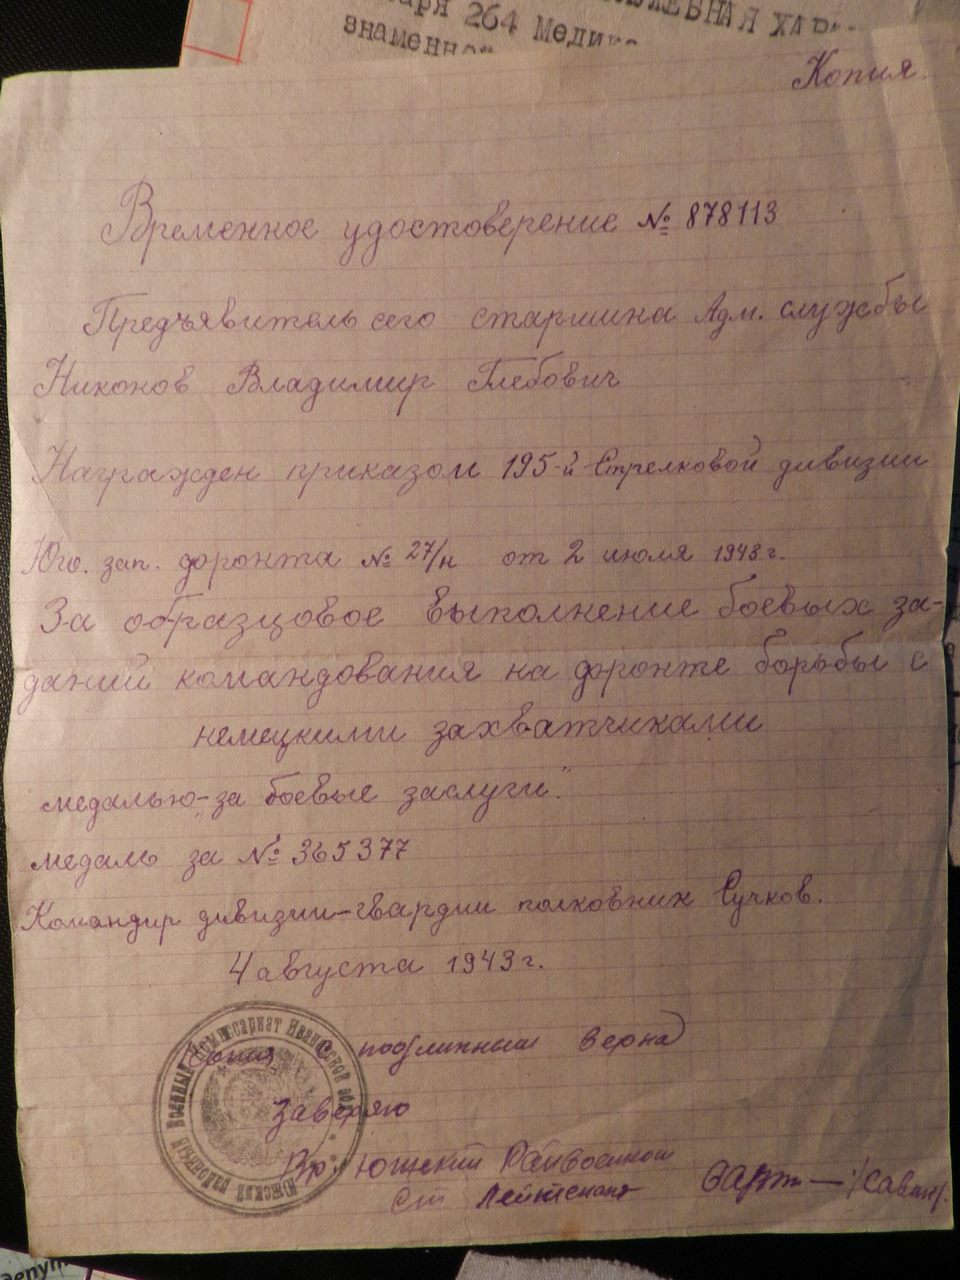 264
знаменно
Копия.
Временное удостоверение № 878113
Предъявитель сего старшина Адм. службы
Никонов Владимир Глебович
Награжден приказом 195-й Стрелковой дивизии
Юго. зап. фронта № 27/н от 2 июля 1943 г.
За образцовое выполнение боевых за-
даний командования на фронте борьбы с
немецкими захватчиками
медалью „за боевые заслуги."
медаль за № 365377
Командир дивизии-гвардии полковник Сучков.
4 августа 1943 г.
Копия с подлинным верна
Заверяю
Вр. Южский Райвоенком
Ст Лейтенант
Южский районный Военный Комиссариат Ивановской обл.